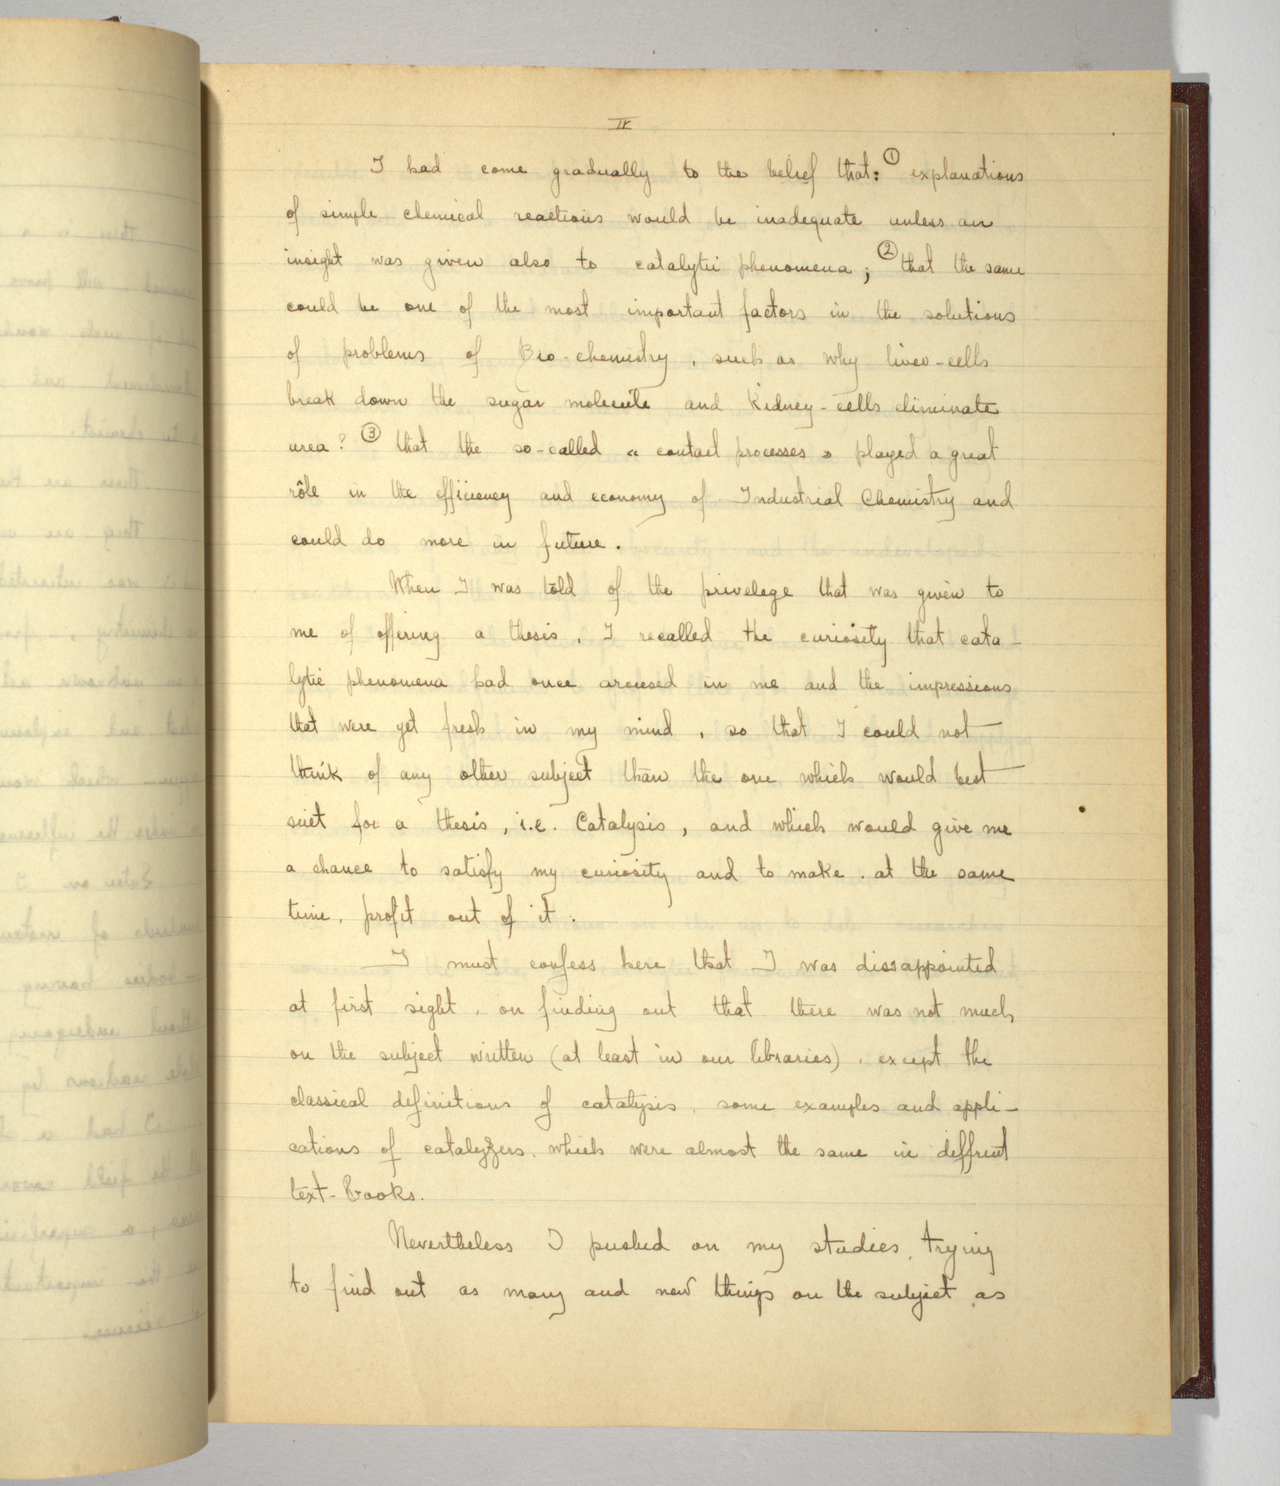 IV
I had come gradually to the belief that: ① explanations
of simple chemical reactions would be inadequate unless an
insight was given also to catalytic phenomena; ② that the same
could be one of the most important factors in the solutions
of problems of Bio-chemistry, such as why liver-cells
break down the sugar molecule and Kidney-cells eliminate
urea? ③ that the so-called « contact processes » played a great
rôle in the efficiency and economy of Industrial Chemistry and
could do more in future.
When I was told of the privelege that was given to
me of offering a thesis, I recalled the curiosity that cata-
lytic phenomena had once aroused in me and the impressions
that were yet fresh in my mind, so that I could not
think of any other subject than the one which would best
suit for a thesis, i.e. Catalysis, and which would give me
a chance to satisfy my curiosity and to make, at the same
time, profit out of it.
I must confess here that I was dissappointed
at first sight, on finding out that there was not much
on the subject written (at least in our libraries), except the
classical definitions of catalysis, some examples and appli-
cations of catalyzers, which were almost the same in diffrent
text-books.
Nevertheless I pushed on my studies, trying
to find out as many and new things on the subject as